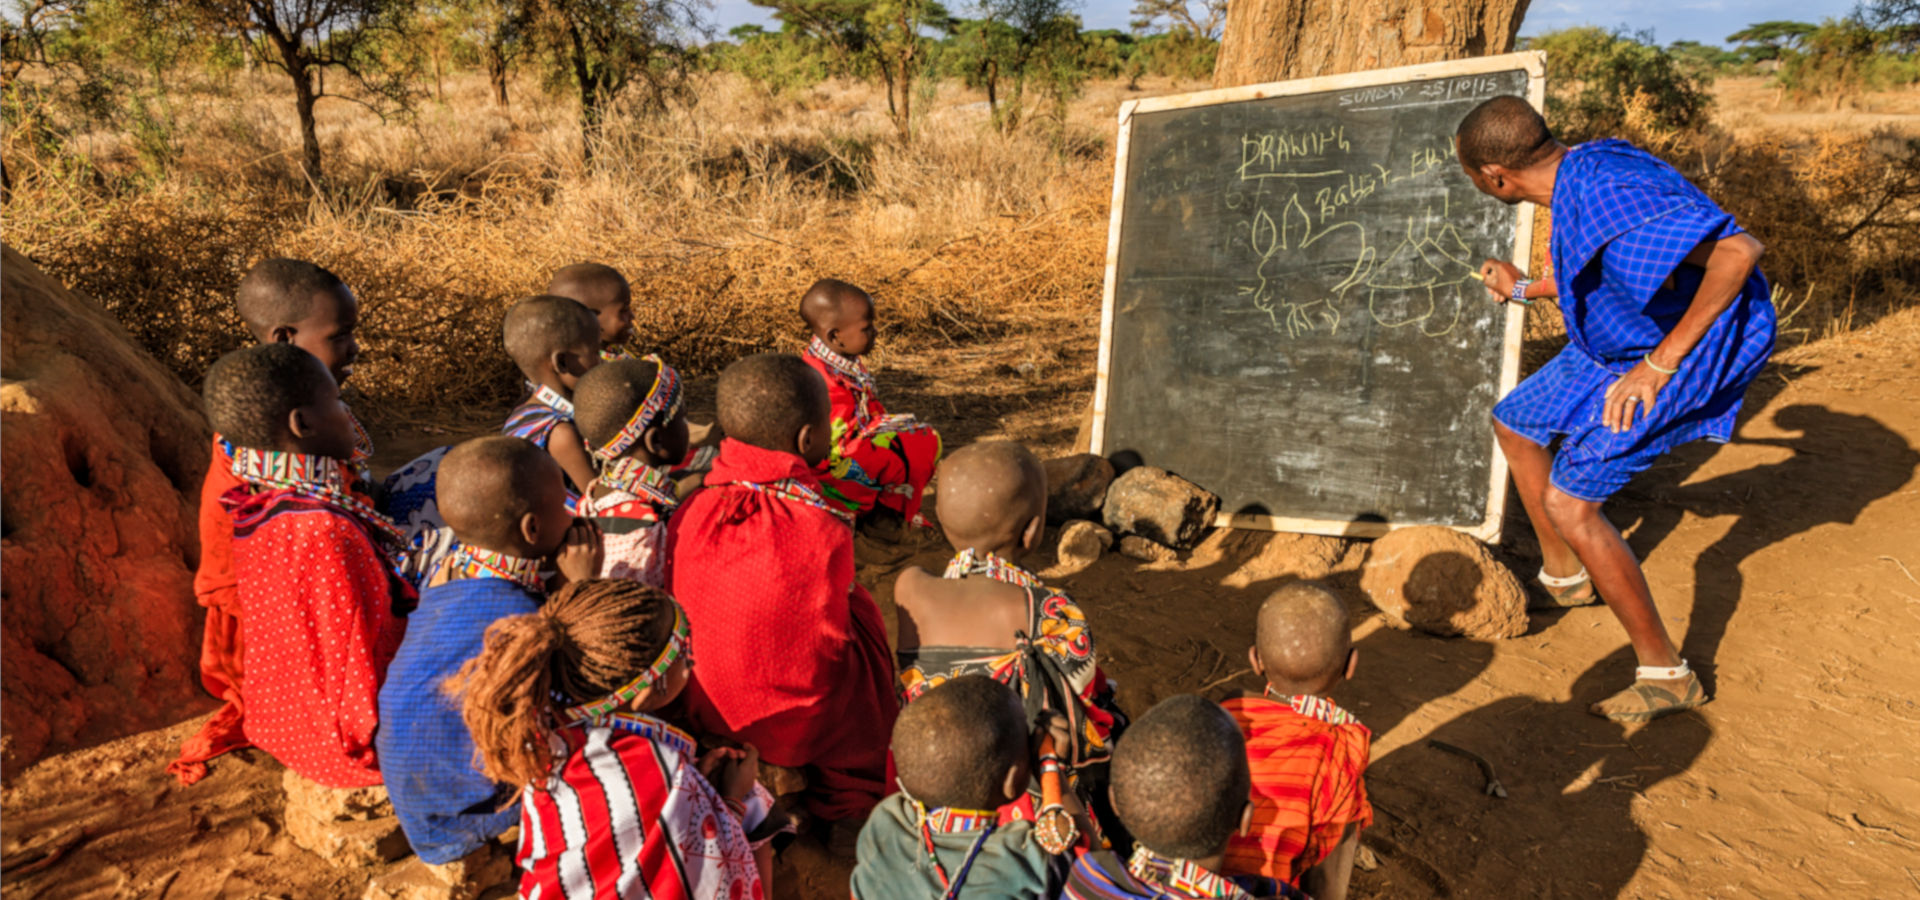 SUNDAY 25/10/15
DRAWING
Rabbit